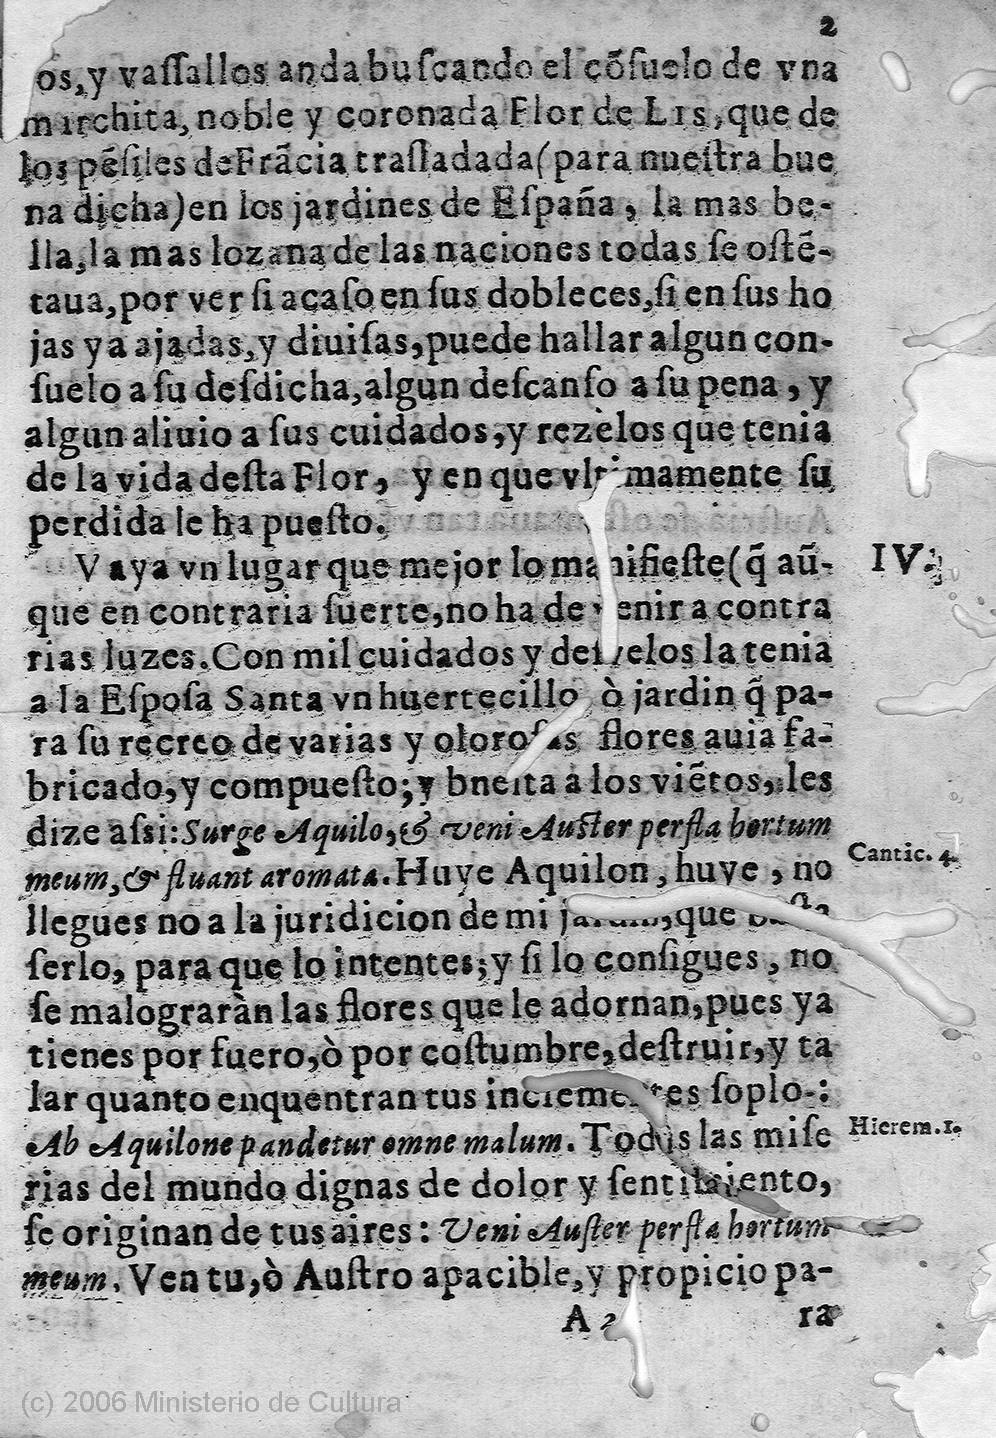 2
os, y vaſſallos anda buſcando el cõſuelo de vna
marchita, noble y coronada Flor de Lis, que de
los pẽſiles de Frãcia traſladada (para nueſtra bue
na dicha) en los jardines de Eſpaña, la mas be-
lla, la mas lozana de las naciones todas ſe oſtẽ-
taua, por ver ſi acaſo en ſus dobleces, ſi en ſus ho
jas ya ajadas, y diuiſas, puede hallar algun con-
ſuelo a ſu deſdicha, algun deſcanſo a ſu pena, y
algun aliuio a ſus cuidados, y rezèlos que tenia
de la vida deſta Flor, y en que vltimamente ſu
perdida le ha pueſto.
Vaya vn lugar que mejor lo manifieſte (q̃ aũ- IV.
que en contraria ſuerte, no ha de venir a contra
rias luzes. Con mil cuidados y deſvelos la tenia
a la Eſpoſa Santa vn huertecillo ò jardin q̃ pa-
ra ſu recreo de varias y oloroſas flores auia fa-
bricado, y compueſto; y buelta a los viẽtos, les
dize aſsi: Surge Aquilo, & veni Auſter perfla hortum
meum, & fluant aromata. Huye Aquilon, huye, no Cantic. 4.
llegues no a la juridicion de mi jardin, que baſta
ſerlo, para que lo intentes; y ſi lo conſigues, no
ſe malograràn las flores que le adornan, pues ya
tienes por fuero, ò por coſtumbre, deſtruir, y ta
lar quanto enquentran tus inclementes ſoplos:
Ab Aquilone pandetur omne malum. Todas las miſe Hierem. 1.
rias del mundo dignas de dolor y ſentimiento,
ſe originan de tus aires: Veni Auſter perfla hortum
meum. Ven tu, ò Auſtro apacible, y propicio pa-
A 2 ra
(c) 2006 Ministerio de Cultura